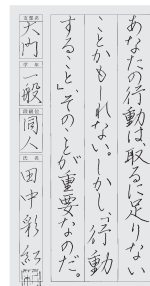 あなたの行動は、取るに足りない
ことかもしれない。しかし、「行動
することし、そのことが重要なのだ。
支部名
大門
学年
一般
段級位
同人
氏名
田中彩紅